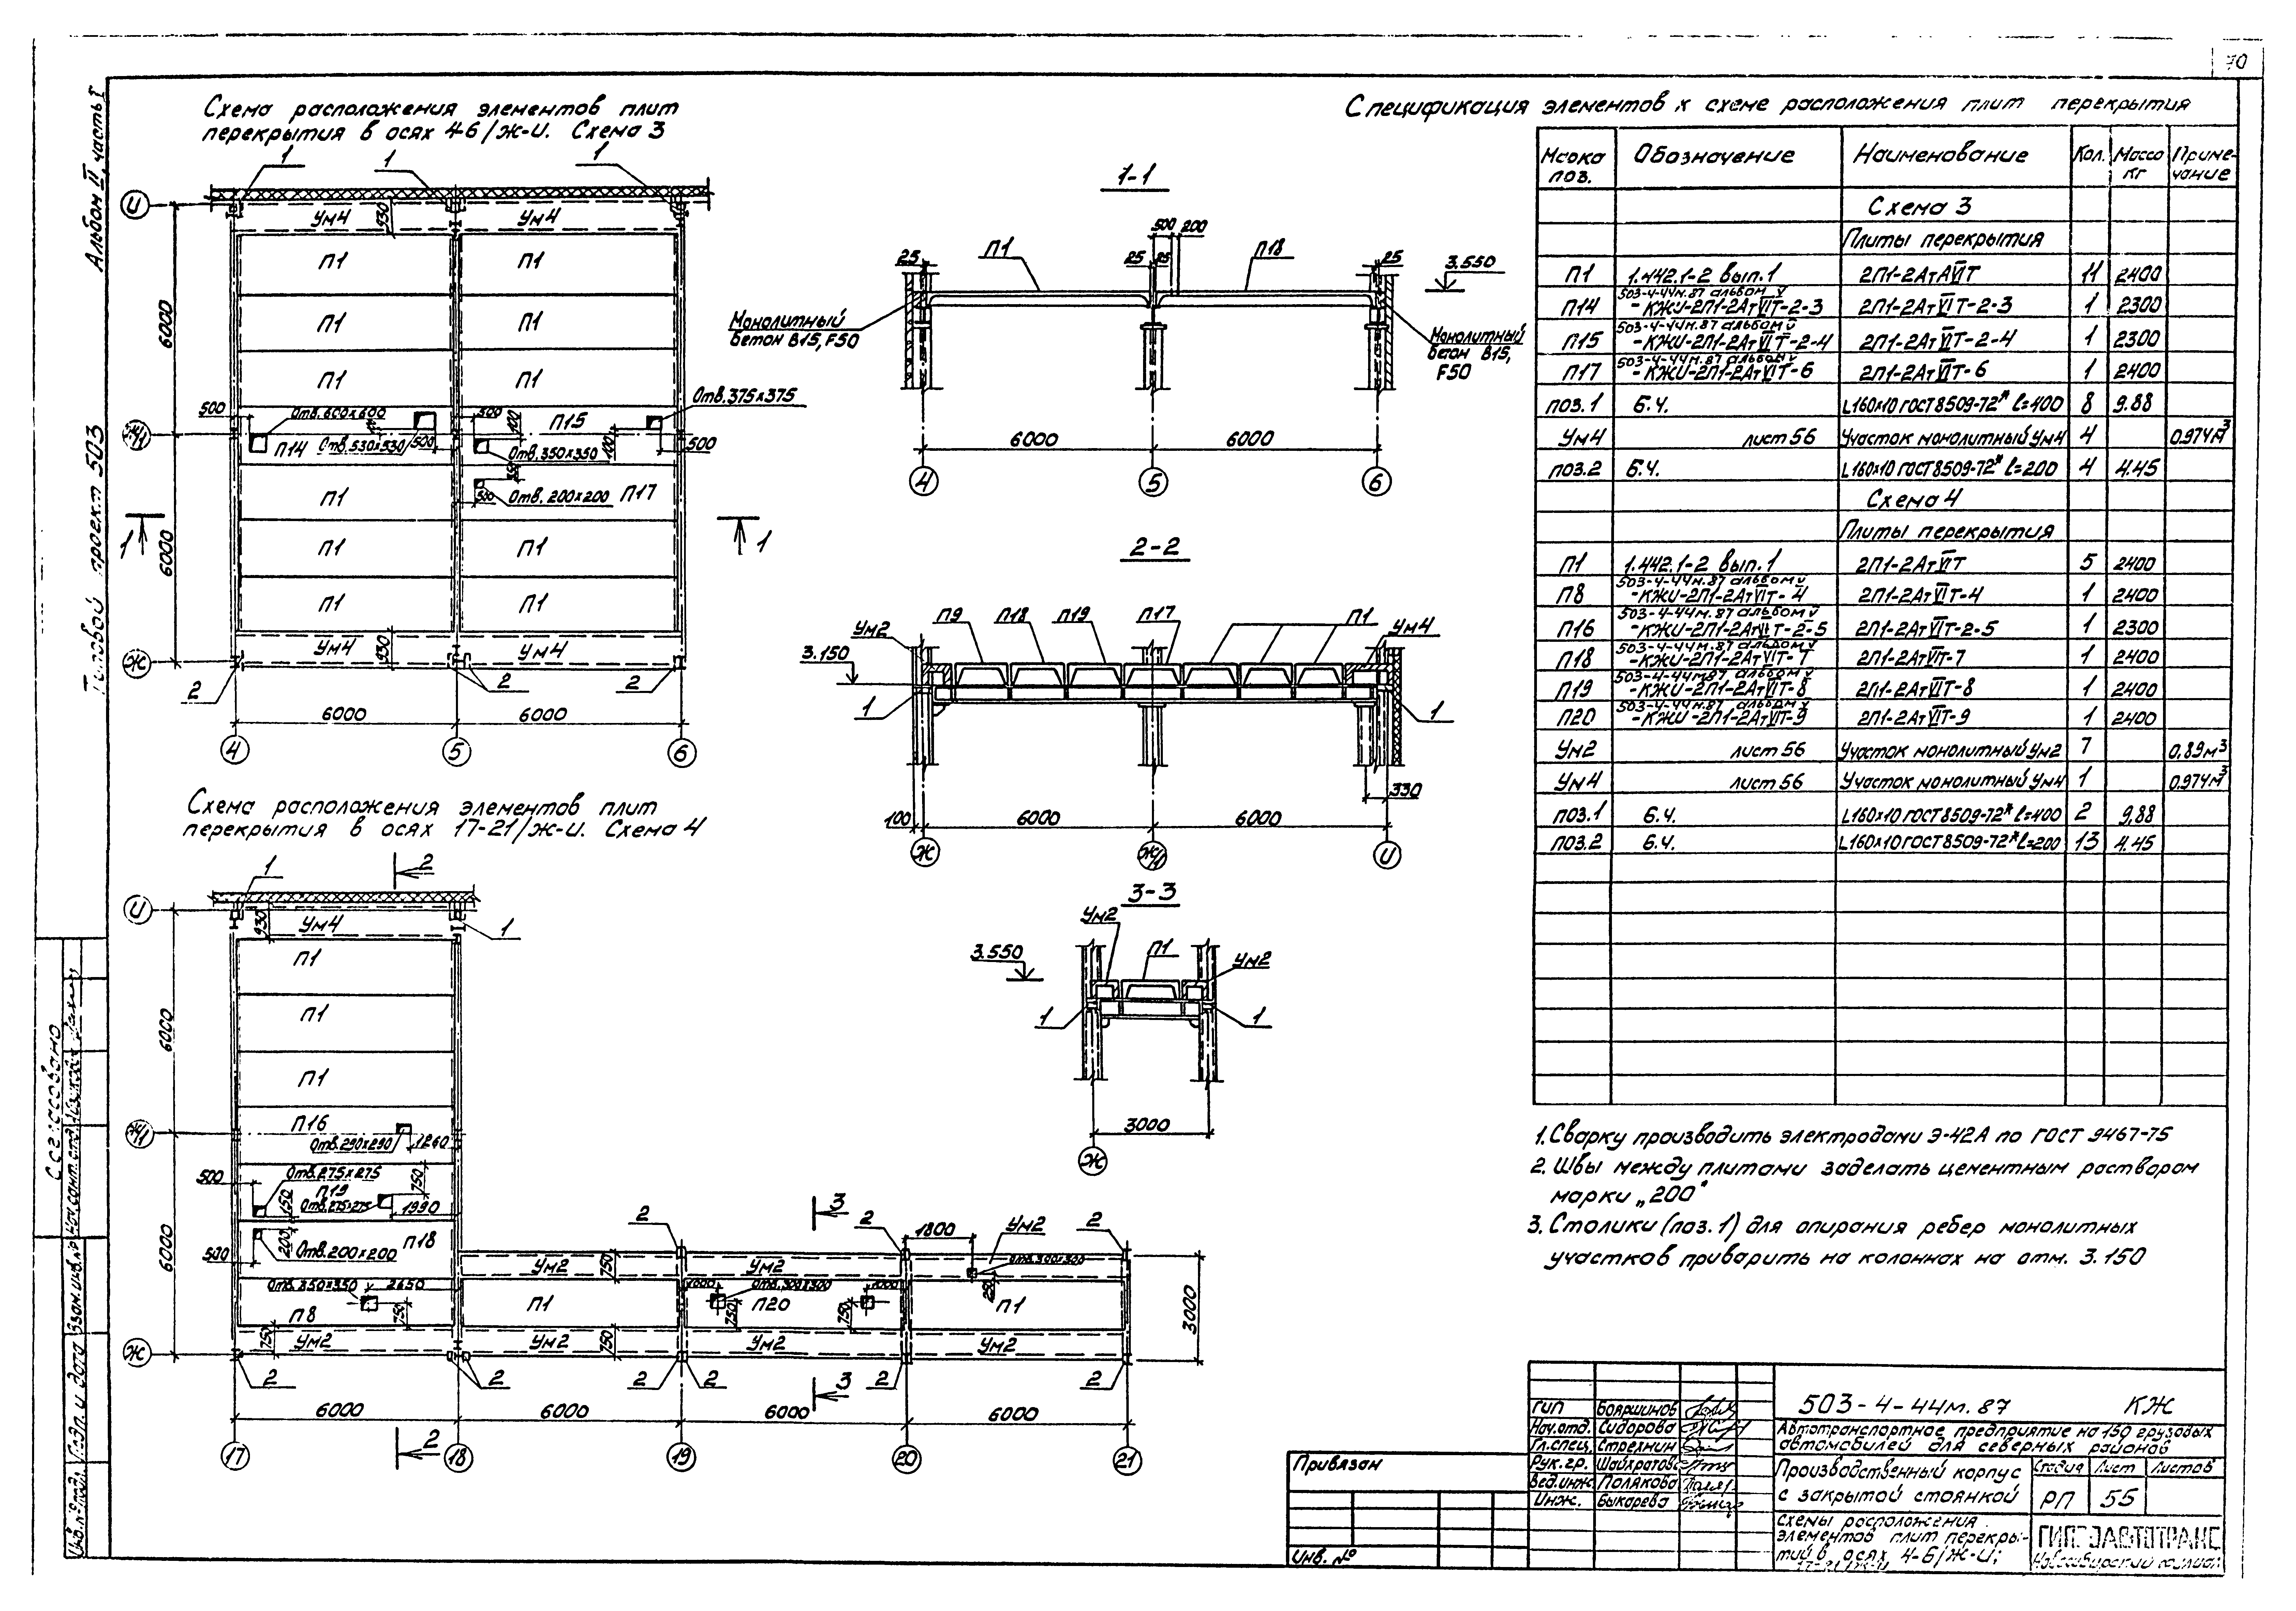 70
Альбом II, часть I
Типовой проект 503
Согласовано
Взам.инв.№
Подп. и дата
Инв.№подл.
Схема расположения элементов плит
перекрытия в осях 4-6/Ж-И. Схема 3
1
1
1
И
Ум4
930
Ум4
П1
П1
6000
П1
П1
П1
П1
500
Отв.600х600
500
100
П15
Отв.375х375
Ж/1
П14
Отв.530х530
500
Отв.350х350
100
500
П1
500
Отв.200х200
П17
1
1
6000
П1
П1
П1
П1
Ум4
930
Ум4
Ж
2
2
2
6000
6000
4
5
6
1-1
500
200
25
П1
25
25
П18
25
3.550
Монолитный
бетон В15, F50
Монолитный
бетон В15,
F50
6000
6000
4
5
6
2-2
Ум2
П9
П18
П19
П17
П1
Ум4
3.150
1
1
330
100
6000
6000
Ж
Ж/1
И
3-3
Ум2
3.550
П1
Ум2
1
1
3000
Ж
Схема расположения элементов плит
перекрытия в осях 17-21/Ж-И. Схема 4
1
2
И
930
Ум4
1
П1
6000
П1
П1
П16
Ж/1
Отв.290х290
1260
500
Отв.275х275
750
П19
150
Отв.275х275
1990
500
200
Отв.200х200
П18
6000
Отв.350х350
2650
П8
750
750
Ум2
Ж
2
2
2
2
2
2
2
3
2
1800
Ум2
2
Ум2
750
Ум2
Отв.300х300
П1
1000
Отв.300х300
П20
750
1000
750
250
П1
3000
Ум2
750
Ум2
Ум2
3
6000
6000
6000
6000
17
2
18
19
20
21
Спецификация элементов к схеме расположения плит перекрытия
Марка поз. Обозначение Наименование Кол. Масса кг Примечание
Схема 3
Плиты перекрытия
П1 1.442.1-2 вып.1 2П1-2АтАVIТ 11 2400
П14 503-4-44м.87 альбом V -КЖИ-2П1-2АтVIТ-2-3 2П1-2АтVIТ-2-3 1 2300
П15 503-4-44м.87 альбом V -КЖИ-2П1-2АтVIТ-2-4 2П1-2АтVIТ-2-4 1 2300
П17 503-4-44м.87 альбом V -КЖИ-2П1-2АтVIТ-6 2П1-2АтVIТ-6 1 2400
поз.1 б.ч. L160х10 ГОСТ8509-72* ℓ=400 8 9.88
Ум4 лист 56 Участок монолитный Ум4 4 0.974м³
поз.2 б.ч. L160х10 ГОСТ8509-72* ℓ=200 4 4.45
Схема 4
Плиты перекрытия
П1 1.442.1-2 вып.1 2П1-2АтVIТ 5 2400
П8 503-4-44м.87 альбом V -КЖИ-2П1-2АтVIТ-4 2П1-2АтVIТ-4 1 2400
П16 503-4-44м.87 альбом V -КЖИ-2П1-2АтVIТ-2-5 2П1-2АтVIТ-2-5 1 2300
П18 503-4-44м.87 альбом V -КЖИ-2П1-2АтVIТ-7 2П1-2АтVIТ-7 1 2400
П19 503-4-44м87 альбом V -КЖИ-2П1-2АтVIТ-8 2П1-2АтVIТ-8 1 2400
П20 503-4-44м.87 альбом V -КЖИ-2П1-2АтVIТ-9 2П1-2АтVIТ-9 1 2400
Ум2 лист 56 Участок монолитный Ум2 7 0,89м³
Ум4 лист 56 Участок монолитный Ум4 1 0.974м³
поз.1 б.ч. L160х10 ГОСТ8509-72* ℓ=400 2 9,88
поз.2 б.ч. L160х10 ГОСТ8509-72* ℓ=200 13 4.45
1. Сварку производить электродами Э-42А по ГОСТ 9467-75
2. Швы между плитами заделать цементным раствором
марки „200"
3. Столики (поз.1) для опирания ребер монолитных
участков приварить на колоннах на отм. 3.150
Привязан
Инв. №
ГИП Бояршинов
Нач.отд. Сидорова
Гл.спец. Стрехнин
Рук.гр.
Вед.инж Полякова
Инж. Быкарева
503-4-44м.87 КЖ
Автотранспортное предприятие на 150 грузовых
автомобилей для северных районов
Производственный корпус
с закрытой стоянкой
Стадия Лист Листов
РП 55
Схемы расположения
элементов плит перекры-
тий в осях 4-6/Ж-И;
17-21/Ж-И
ГИПРОАВТОТРАНС
Новосибирский филиал